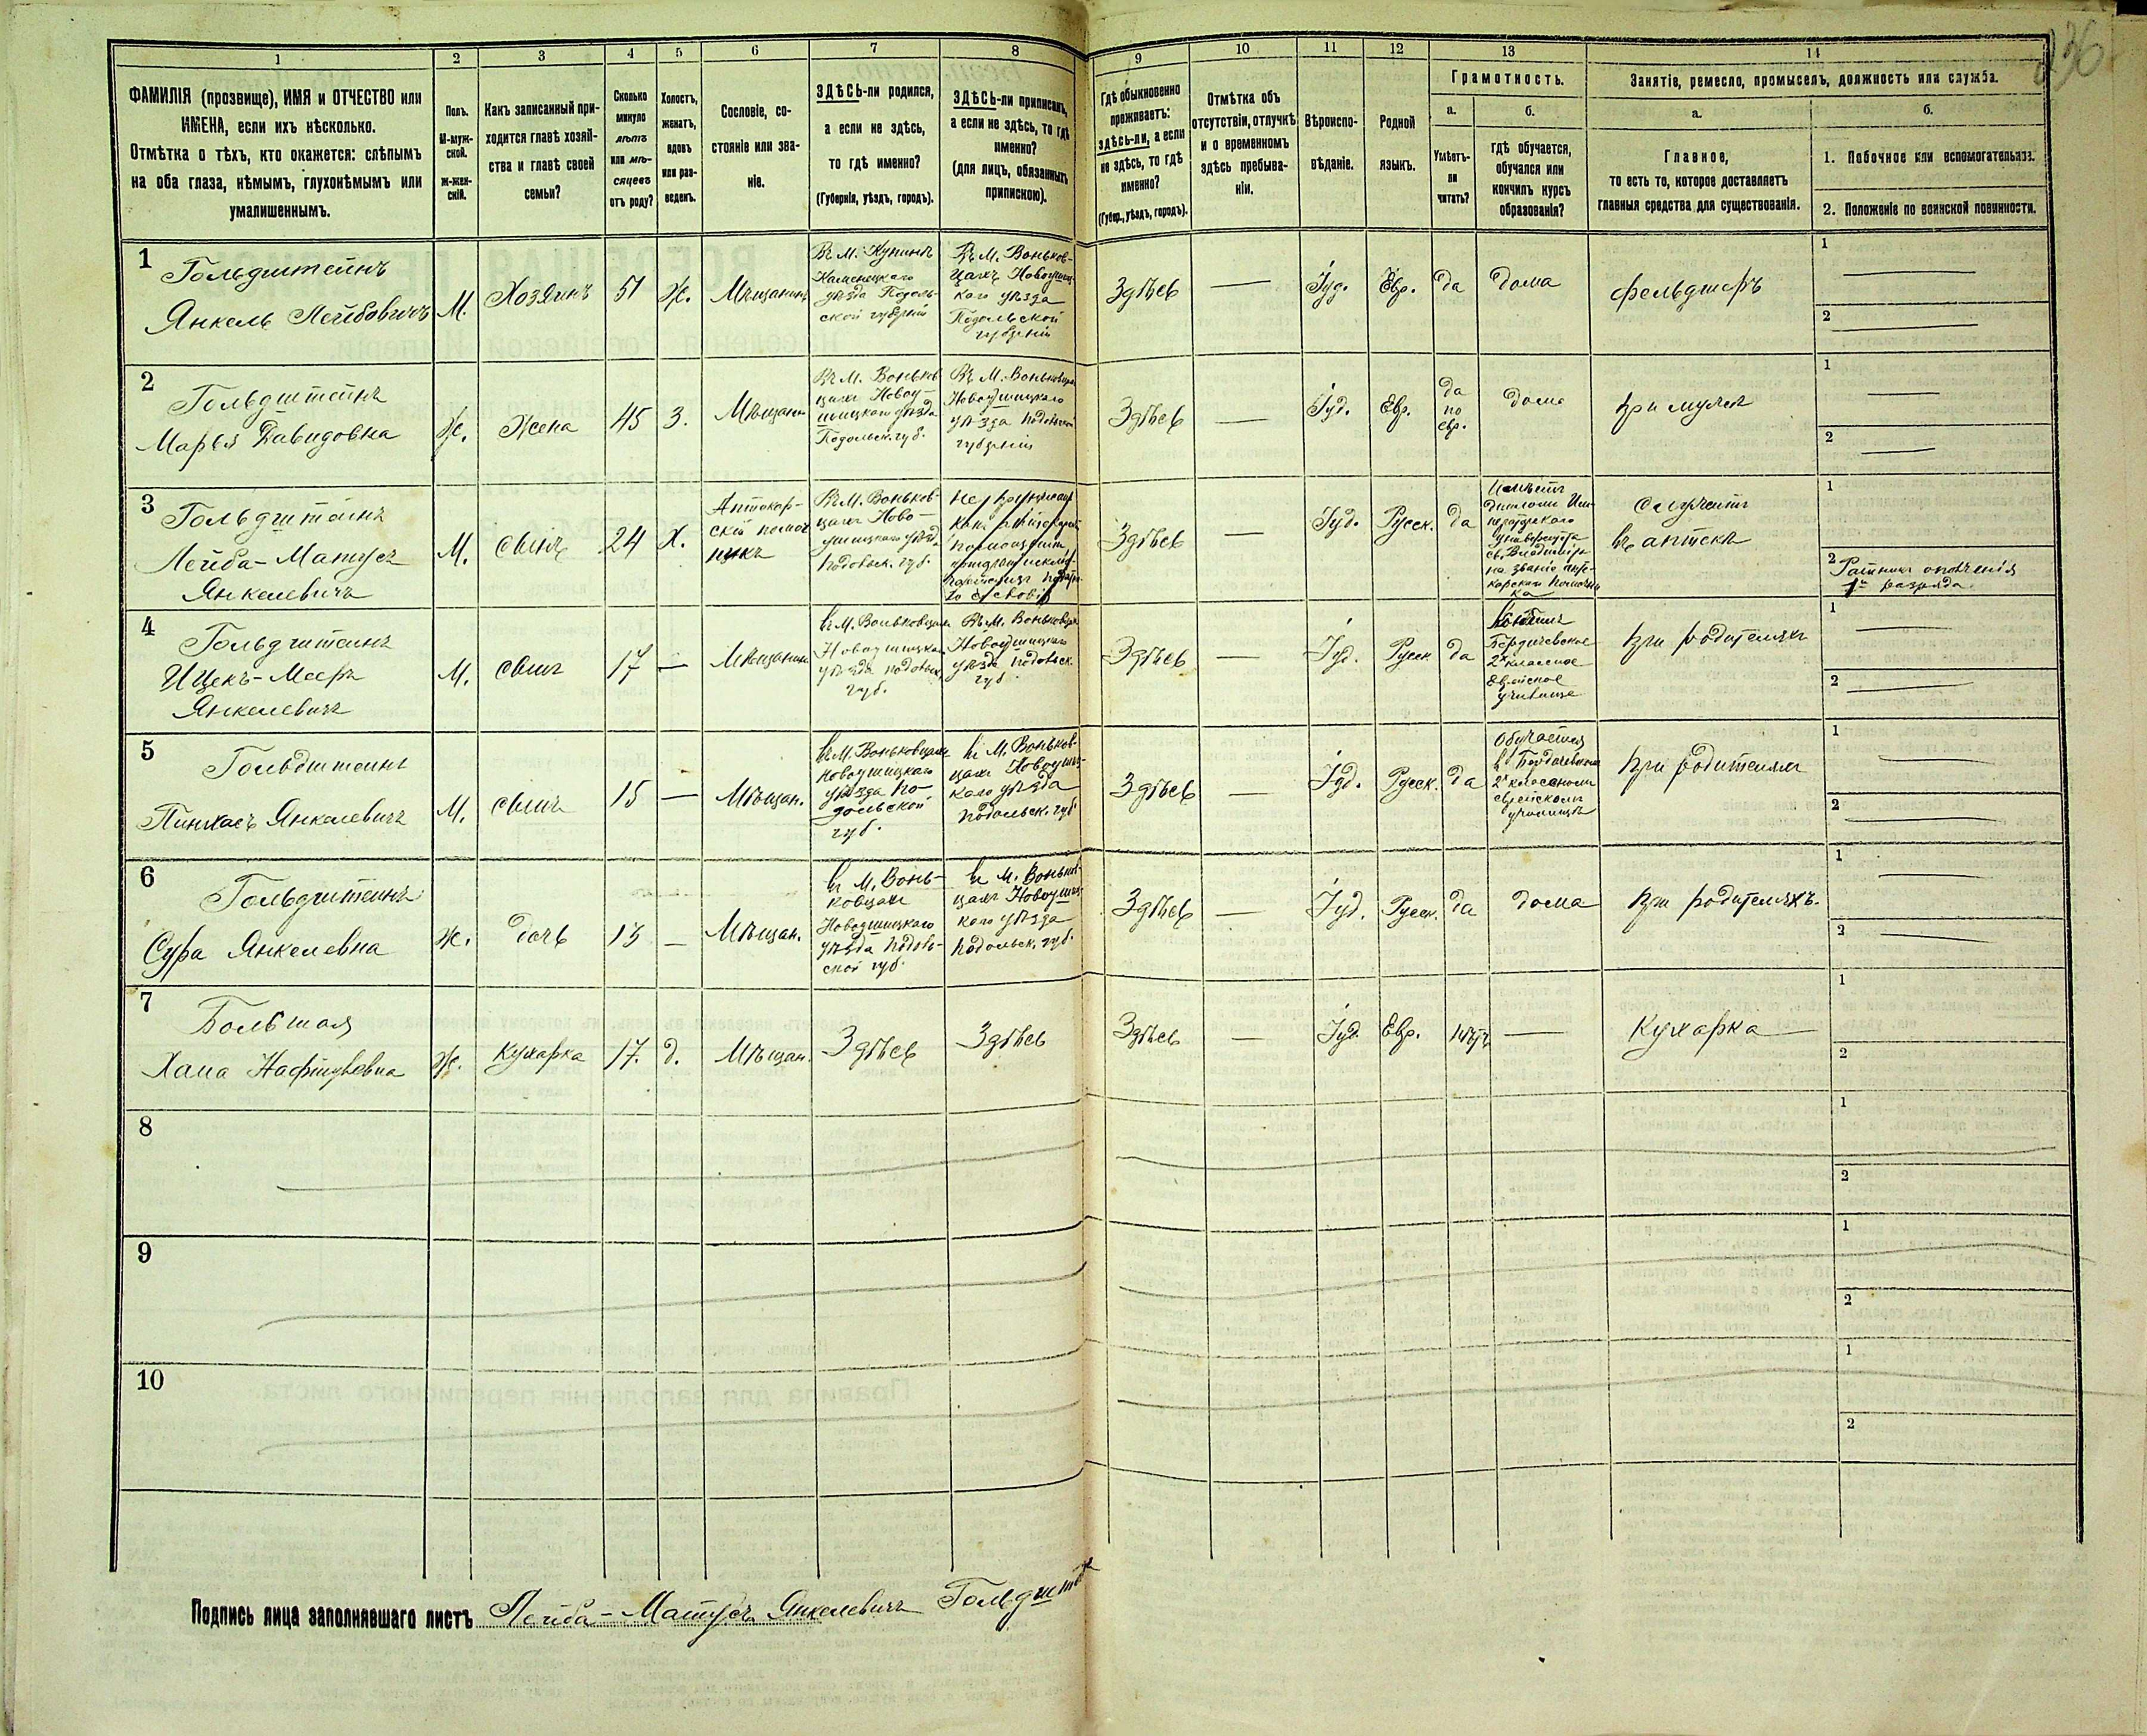 236
1 2 3 4 5 6 7 8 9 10 11 12 13 14
ФАМИЛІЯ (прозвище), ИМЯ и ОТЧЕСТВО или
ИМЕНА, если ихъ нѣсколько.
Отмѣтка о тѣхъ, кто окажется: слѣпымъ
на оба глаза, нѣмымъ, глухонѣмымъ или
умалишеннымъ.
Полъ.
М-муж-
ской.
Ж-жен-
скій.
Какъ записанный при-
ходится главѣ хозяй-
ства и главѣ своей
семьи?
Сколько
минуло
лѣтъ
или мѣ-
сяцевъ
отъ роду?
Холостъ,
женатъ,
вдовъ
или раз-
веденъ.
Сословіе, со-
стояніе или зва-
ніе.
ЗДѢСЬ-ли родился,
а если не здѣсь,
то гдѣ именно?
(Губернія, уѣздъ, городъ).
ЗДѢСЬ-ли приписанъ,
а если не здѣсь, то гдѣ
именно?
(для лицъ, обязанныхъ
припискою).
Гдѣ обыкновенно
проживаетъ:
здѣсь-ли, а если
не здѣсь, то гдѣ
именно?
(Губер., уѣздъ, городъ).
Отмѣтка объ
отсутствіи, отлучкѣ
и о временномъ
здѣсь пребыва-
ніи.
Вѣроиспо-
вѣданіе.
Родной
языкъ.
Грамотность.
а.
Умѣетъ-
ли
читать?
б.
гдѣ обучается,
обучался или
кончилъ курсъ
образованія?
Занятіе, ремесло, промыселъ, должность или служба.
а.
Главное,
то есть то, которое доставляетъ
главныя средства для существованія.
б.
1. Побочное или вспомогательное.
2. Положеніе по воинской повинности.
1
Гольдштейнъ
Янкель Лейбовичъ
М.
Хозяинъ
51
Ж.
Мѣщанинъ
Въ М. Купинѣ
Каменецкаго
уѣзда Подоль-
ской губерніи
Въ М. Воньков-
цахъ Новоушиц-
каго уѣзда
Подольской
губерніи
Здѣсь
—
Іуд.
Евр.
да
дома
фельдшеръ
1
2
2
Гольдштейнъ
Марья Давидовна
Ж.
Жена
45
З.
Мѣщанка
Въ М. Воньков-
цахъ Новоу-
шицкаго уѣзда
Подольск. губ.
Въ М. Воньковцахъ
Новоушицкаго
уѣзда Подольской
губерніи
Здѣсь
—
Іуд.
Евр.
да
по
евр.
дома
при мужѣ
1
2
3
Гольдштейнъ
Лейба-Матусъ
Янкелевичъ
М.
сынъ
24
Х.
Аптекар-
скій помощ-
никъ
Въ М. Воньков-
цахъ Ново-
ушицкаго уѣзд.
Подольск. губ.
Здѣсь
—
Іуд.
Русск.
да
Имѣетъ
дипломъ Им-
ператорскаго
Университета
св. Владиміра
на званіе апте-
карскаго помощни-
ка
Служитъ
въ аптекѣ
1
2 Ратникъ ополченія
1го разряда
4
Гольдштейнъ
Ицекъ-Мееръ
Янкелевичъ
М.
сынъ
17
—
Мѣщанинъ
въ М. Воньковцахъ
Новоушицкаго
уѣзда Подольск.
губ.
Въ М. Воньковцахъ
Новоушицкаго
уѣзда Подольск.
губ.
Здѣсь
—
Іуд.
Русск.
да
Бердичевское
2х классное
Еврейское
училище
при родителяхъ
1
2
5
Гольдштейнъ
Пинхасъ Янкелевичъ
М.
сынъ
15
—
Мѣщан.
въ М. Воньковцахъ
Новоушицкаго
уѣзда По-
дольской
губ.
въ М. Воньков-
цахъ Новоушиц-
каго уѣзда
Подольск. губ.
Здѣсь
—
Іуд.
Русск.
да
Обучается
въ Бердичевскомъ
2х классномъ
еврейскомъ
училищѣ
при родителяхъ
1
2
6
Гольдштейнъ
Сура Янкелевна
Ж.
дочь
13
—
Мѣщан.
въ М. Вонь-
ковцахъ
Новоушицкаго
уѣзда Подоль-
ской губ.
въ М. Воньков-
цахъ Новоушиц-
каго уѣзда
Подольск. губ.
Здѣсь
—
Іуд.
Русск.
да
дома
при родителяхъ.
1
2
7
Большая
Хана Нафтулевна
Ж.
Кухарка
17.
д.
Мѣщан.
Здѣсь
Здѣсь
Здѣсь
—
Іуд.
Евр.
нѣтъ
—
Кухарка
1
2
8
1
2
9
1
2
10
1
2
Подпись лица заполнявшаго листъ Лейба-Матусъ Янкелевичъ Гольдштейнъ